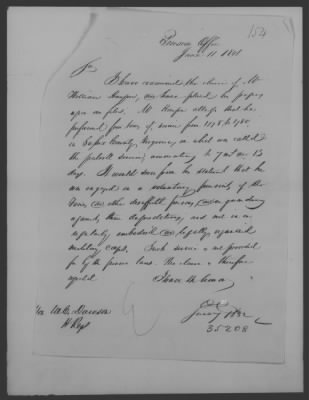 154
Pension Office
June 11 1841
Sir
I have examined the claim of Mr
William , and have placed the papers
upon file. Mr alleges that he
performed four tours of service from 1778 to 1780,
in County, Virginia, in what was called
the patroll service, amounting to 7 mos
days. It would seem from his statement that he
was engaged in a voluntary of the
Tories and other disaffected persons, and in guarding
against their depredations, and not in a
regularly embodied and legally organized
military corps. Such service is not provided
for by the pension laws. The claim is therefore
rejected
I have the honor
W. C. Dawson
H Reps
35208